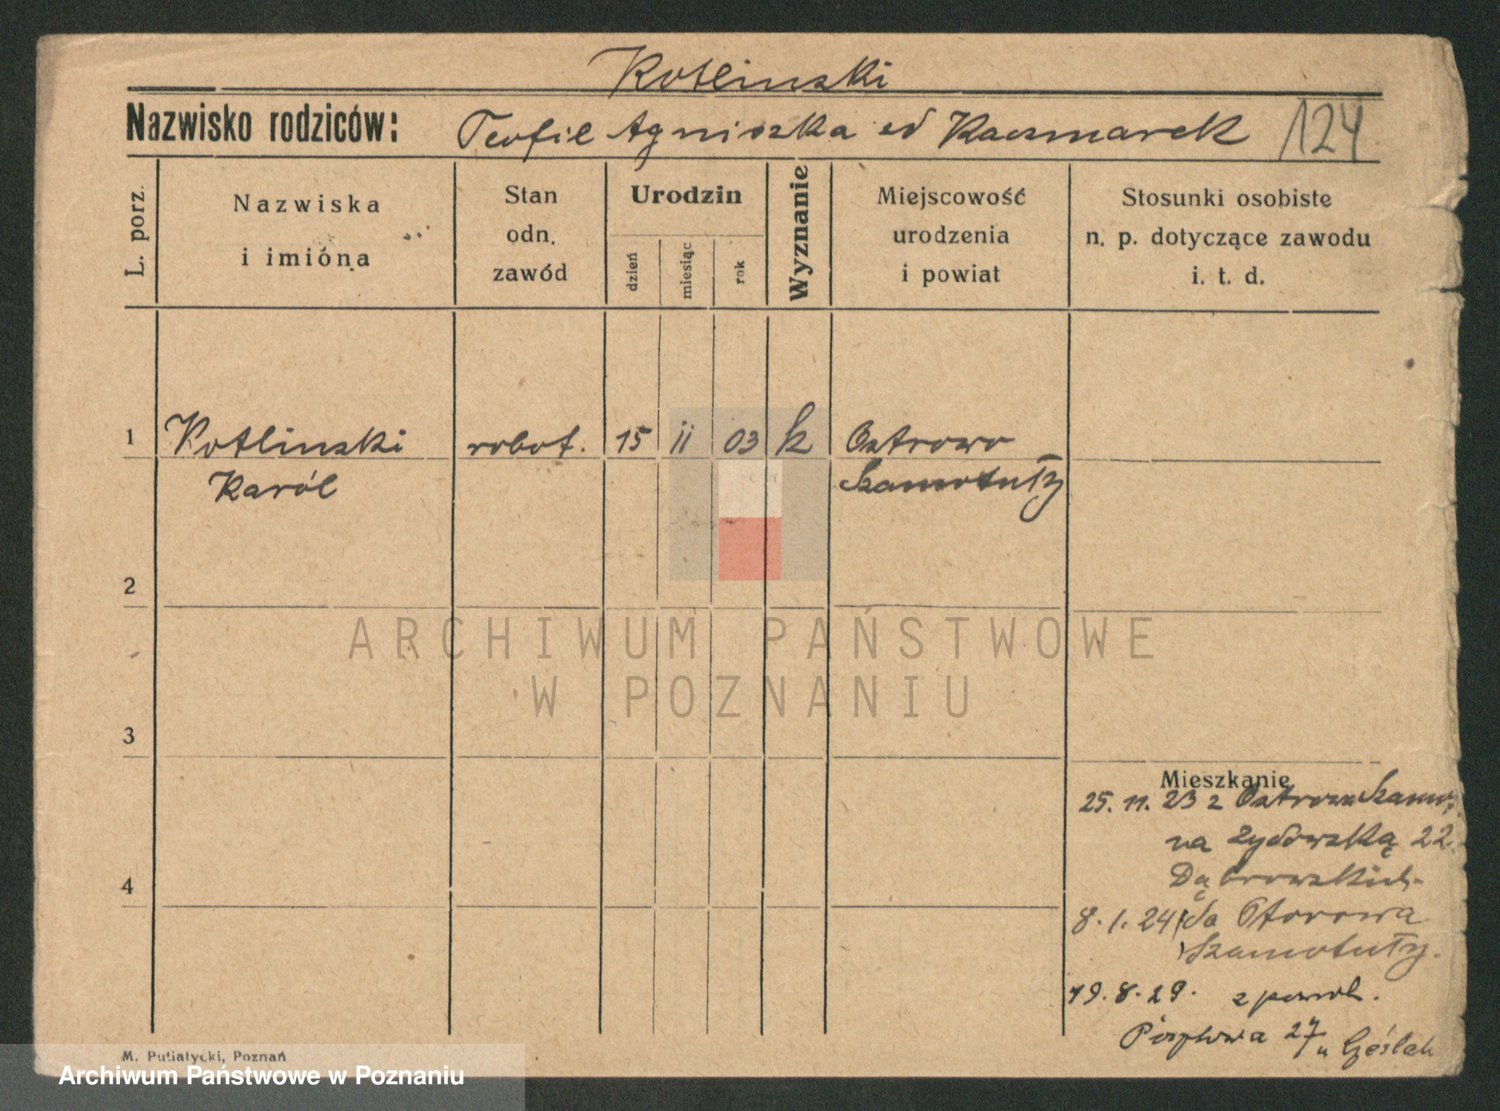 Kotlinski
Nazwisko rodziców: Teofil Agniszka ed Kaczmarek 124
L. porz.
Nazwiska
i imióna
Stan
odn.
zawód
Urodzin
dzień
miesiąc
rok
Wyznanie
Miejscowość
urodzenia
i powiat
Stosunki osobiste
n. p. dotyczące zawodu
i. t. d.
1 Kotlinski robot. 15 ii 03 k Ostrowo
Karól Szamotuły
2
3
4
Mieszkanie
25. 11. 23 z Ostrowa Szamo.
na Zydowską 22
Dąbrowskich.
8. 1. 24 do Otorowa
Szamotuły.
19. 8. 29. z powr.
27 u
ARCHIWUM PAŃSTWOWE
W POZNANIU
M. Putiatycki, Poznań
Archiwum Państwowe w Poznaniu